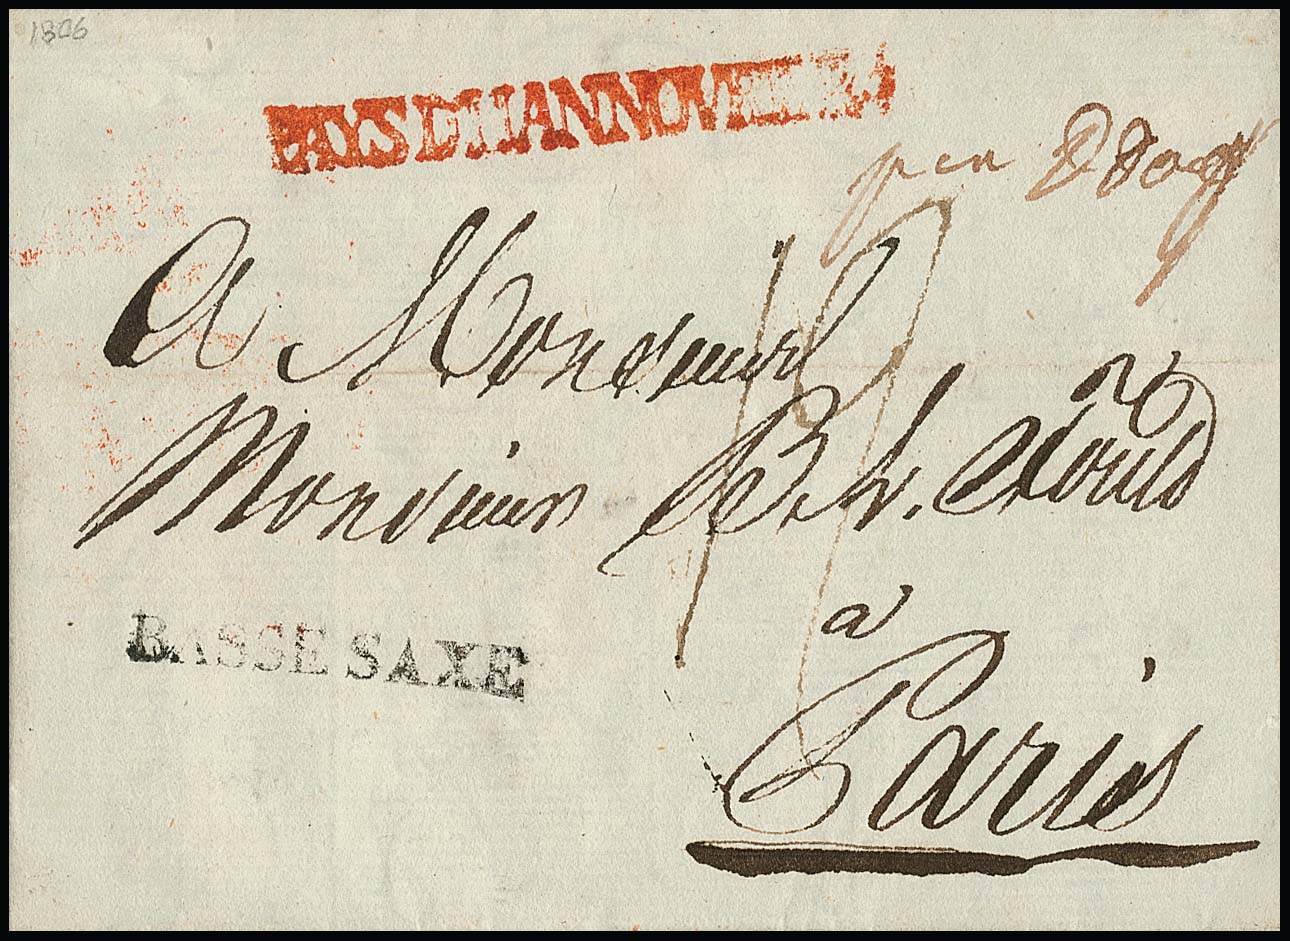 1806
PAYS D HANNOVRE
A Monsieur
Monsieur B. L. Fould
à
Paris
BASSE SAXE